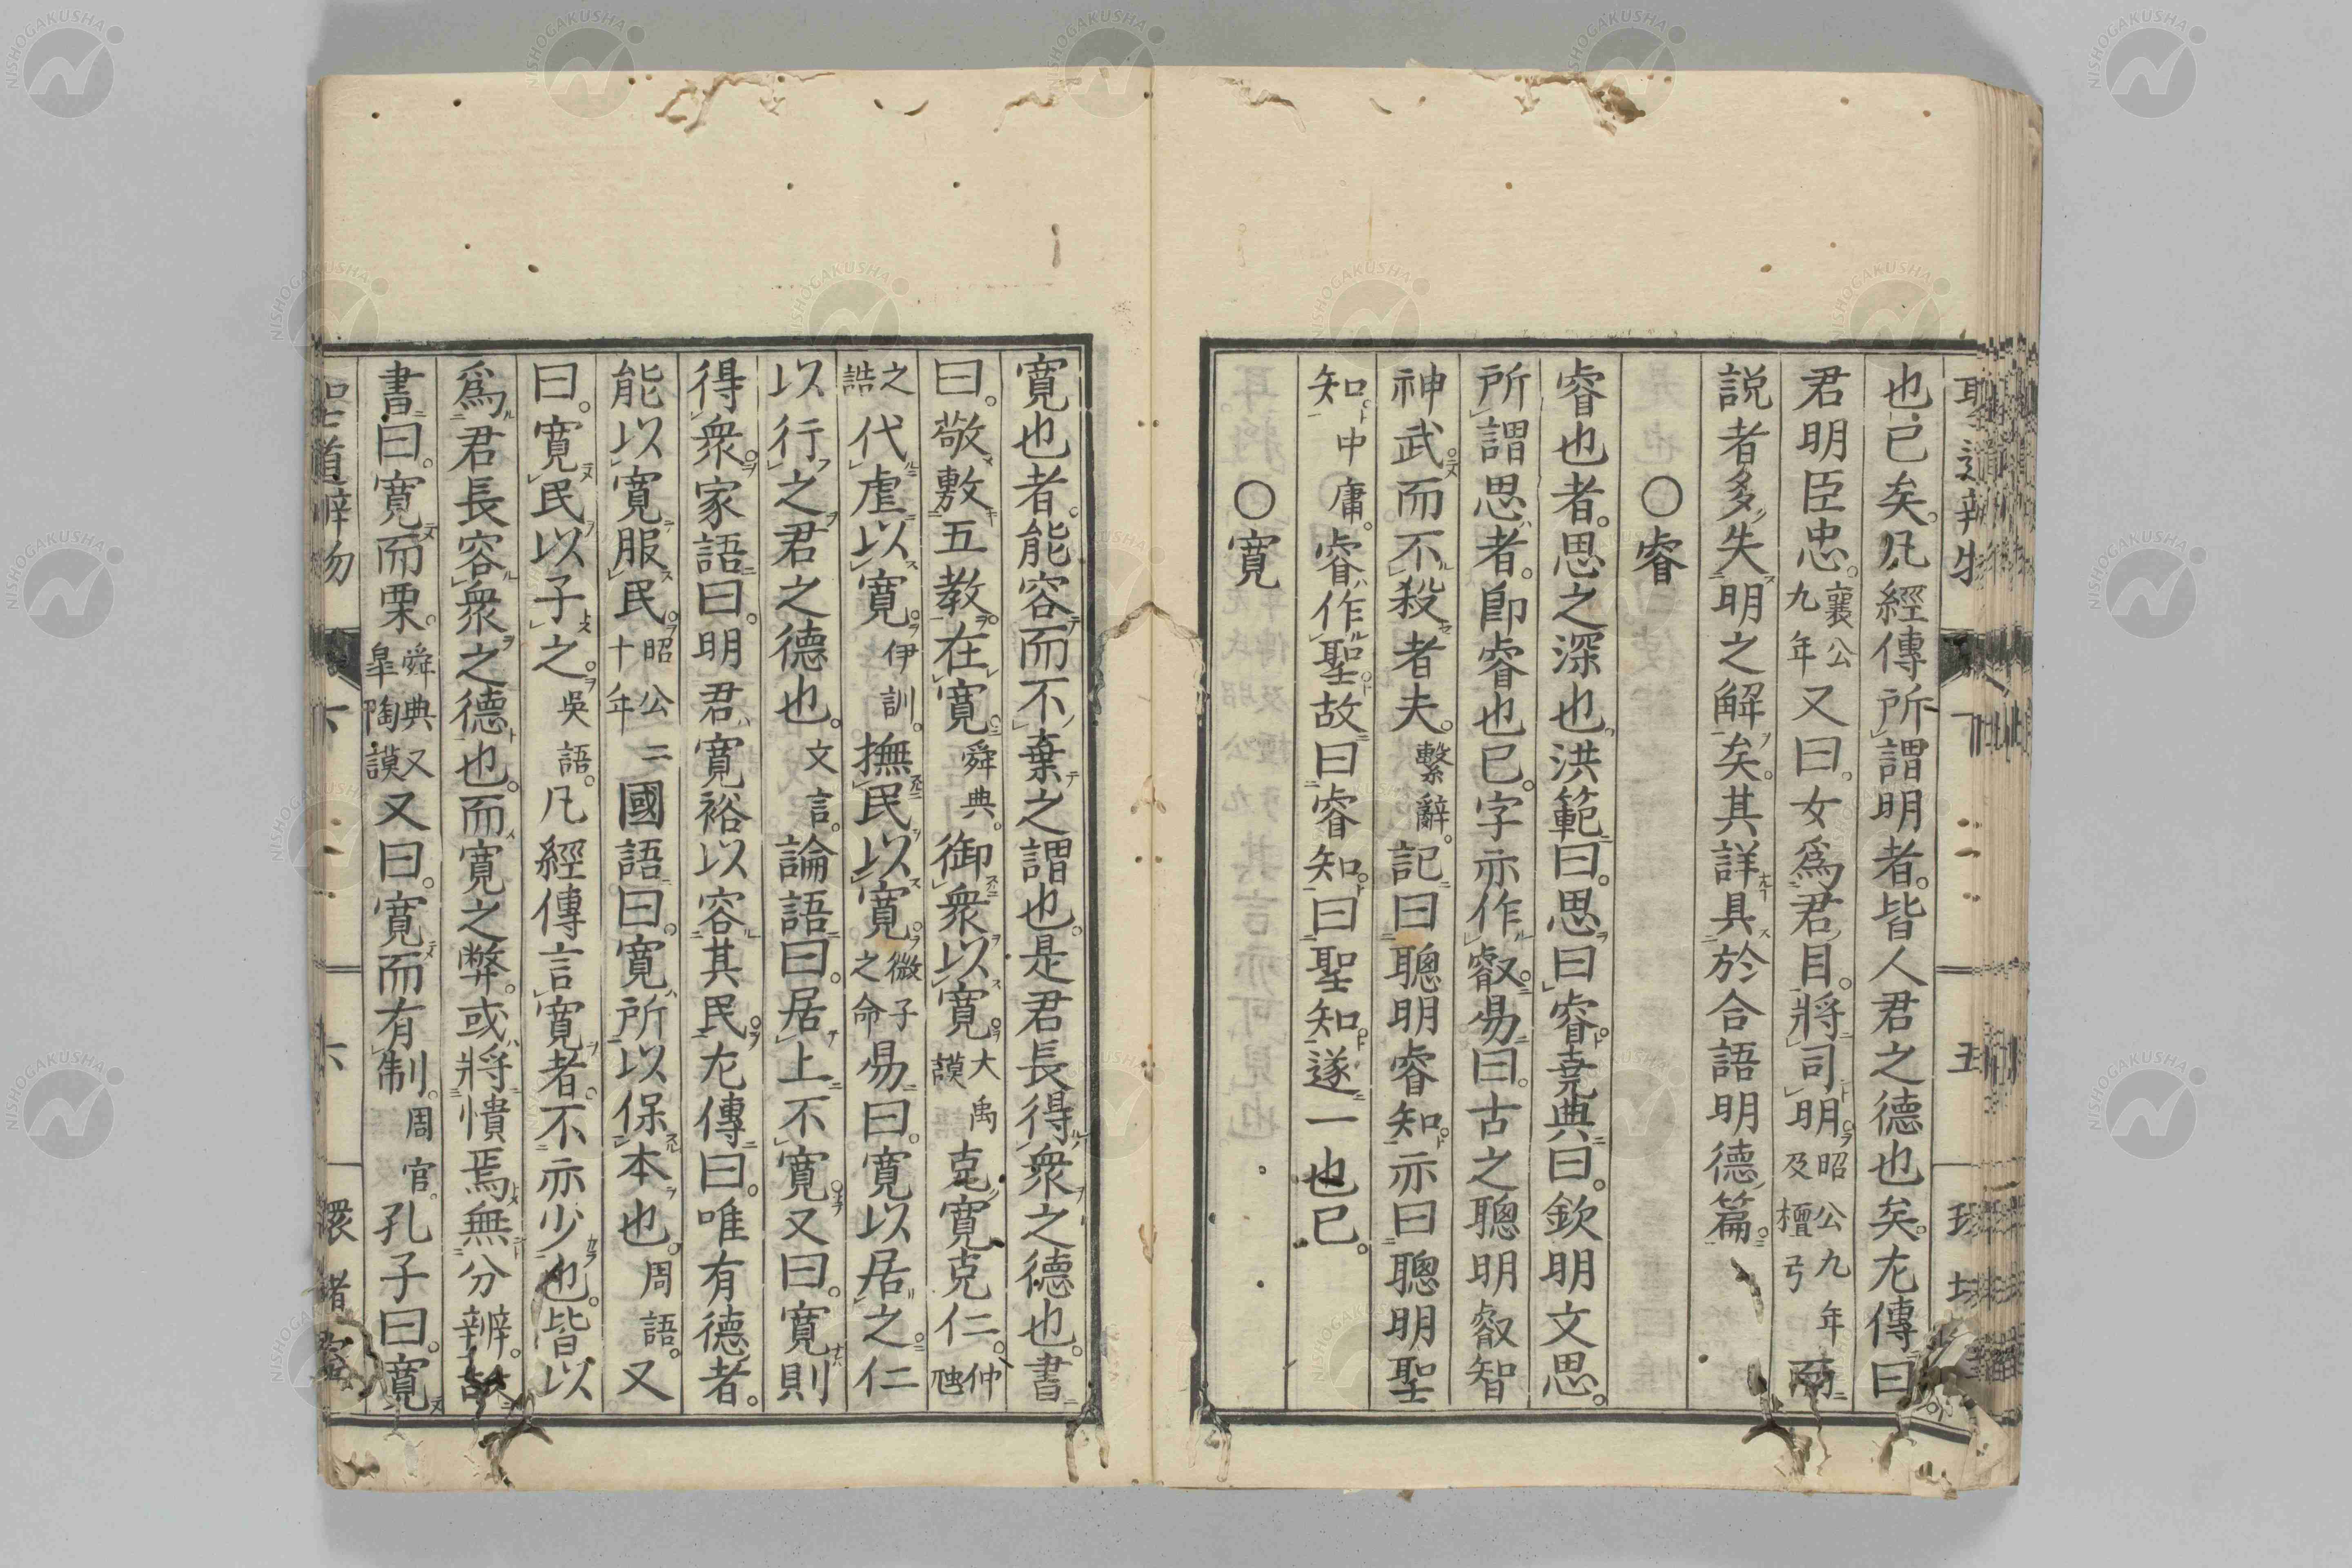 也已矣。凡經傳所謂明者。皆人君之德也矣。左傳曰。
君明臣忠。襄公九年又曰。女爲君目。將司明。昭公九年及檀弓
說者多失明之解矣。其詳具於合語明德篇。
○睿
睿也者。思之深也。洪範曰。思曰睿。堯典曰。欽明文思。
所謂思者。卽睿也已。字亦作叡。易曰。古之聰明叡智
神武而不殺者夫。繫辭。記曰聰明睿知。亦曰聰明聖
知。中庸。睿作聖。故曰睿知。曰聖知。遂一也已。
○寬
寬也者。能容而不棄之謂也。是君長得衆之德也。書
曰。敬敷五教。在寬。舜典。御衆以寬。大禹謨克寬克仁。仲虺
之誥代虐以寬。伊訓。撫民以寬。微子之命易曰。寬以居之。仁
以行之。君之德也。文言。論語曰。居上不寬。又曰。寬則
得衆。家語曰。明君寬裕以容其民。左傳曰。唯有德者。
能以寬服民。昭公二十年國語曰。寬所以保本也。周語。又
曰。寬民以子之。吳語。凡經傳言寬者。不亦少也。皆以
爲君長容衆之德也。而寬之弊。或將憒焉無分辨。故
書曰。寬而栗。舜典又皋陶謨又曰。寬而有制。周官。孔子曰。寬
聖道辨物 下 六 環堵室
NISHOGAKUSHA